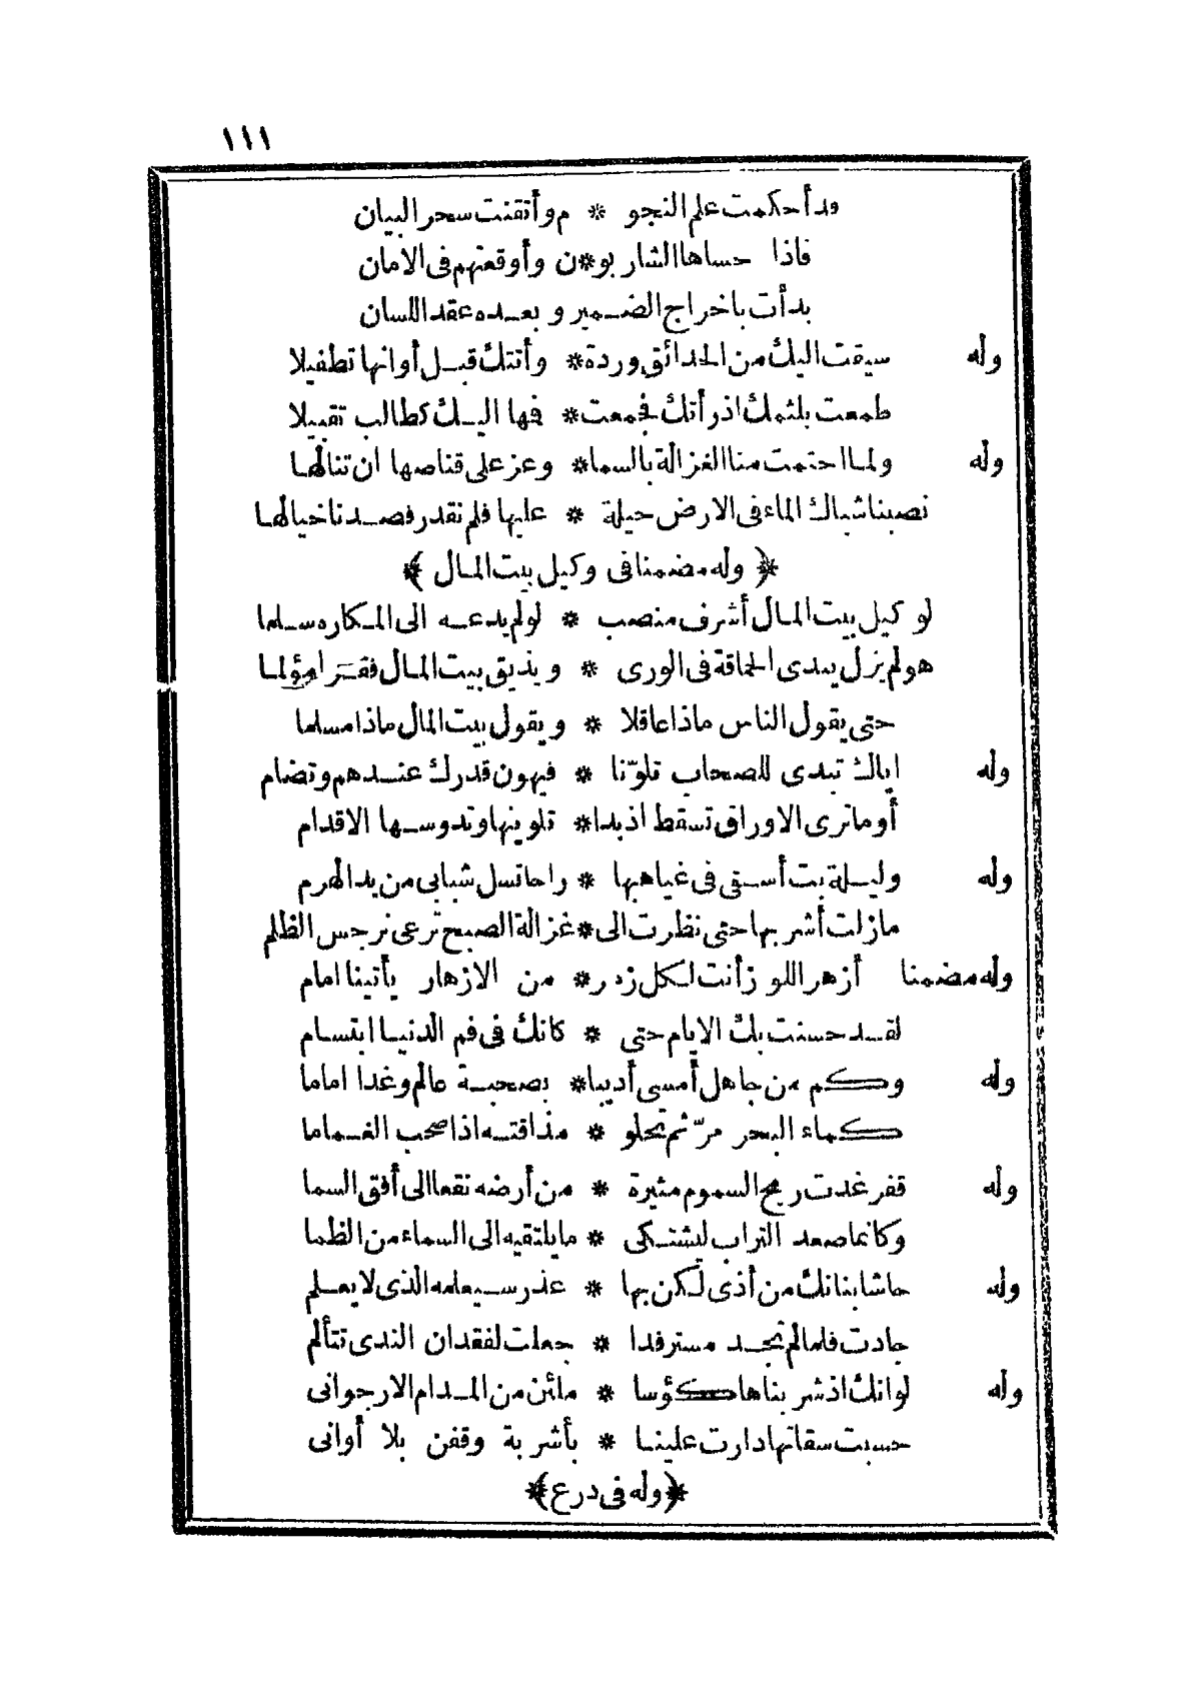 ١١١
قد أحكمت علم النجو * م وأتقنت سحر البيان
فاذا حساها الشاربو * ن وأوقعتهم فى الامان
بدأت باخراج الضمير و بعده عقد اللسان
وله سيقت اليك من الحدائق وردة * وأتتك قبل أوانها تطفيلا
طمعت بلثمك اذ رأتك فجمعت * فها اليك كطالب تقبيلا
وله ولما احتمت منا الغزالة بالسما * وعز على قناصها ان تنالها
نصبنا شباك الماء فى الارض حيلة * عليها فلم نقدر فصدنا خيالها
﴿ وله مضمنا فى وكيل بيت المال ﴾
لوكيل بيت المال أشرف منصب * لو لم يدعه الى المكاره سلما
هو لم يزل يبدى الحماقة فى الورى * ويذيق بيت المال فقرا مؤلما
حتى يقول الناس ماذا عاقلا * ويقول بيت المال ماذا مسلما
وله اياك تبدى للصحاب تلوّنا * فيهون قدرك عندهم وتضام
أوما ترى الاوراق تسقط اذ بدا * تلوينها وتدوسها الاقدام
وله وليلة بت أسقى فى غياهبها * راحا تسل شبابى من يد الهرم
مازلت أشربها حتى نظرت الى * غزالة الصبح ترعى نرجس الظلم
وله مضمنا أزهر اللوز أنت لكل زهر * من الازهار يأتينا امام
لقد حسنت بك الايام حتى * كانك فى فم الدنيا ابتسام
وله وكم من جاهل أمسى أديبا * بصحبة عالم وغدا اماما
كماء البحر مرّ ثم تحلو * مذاقته اذا صحب الغماما
وله قفر غدت ريح السموم مثيرة * من أرضه نقعا الى أفق السما
وكانما صعد التراب ليشتكى * مايلتقيه الى السماء من الظما
وله حاشا بنانك من أذى لكن بها * عذر سيعلمه الذى لا يعلم
جادت فلما لم تجد مسترفدا * جعلت لفقدان الندى تتألم
وله لو انك اذ شربناها كؤسا * ملئن من المدام الارجوانى
حسبت سقاتها دارت علينا * بأشربة وقفن بلا أوانى
﴿ وله فى درع ﴾